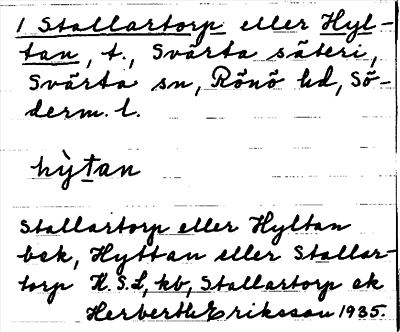 1 Stallartorp eller Hyl-
tan, t., Svärta säteri,
Svärta sn, Rönö hd, Sö-
derm. l.
hỳtan
Stallartorp eller Hyltan
bek, Hyttan eller Stallar-
torp H.S.L, kb, Stallartorp ek
Herberth Eriksson 1935.